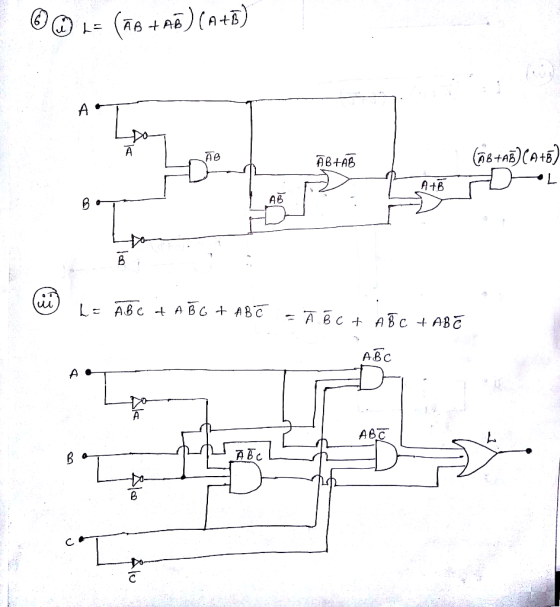 ⑥ ⓘ L = (A̅B + AB̅) (A+B̅)
A
A̅
A̅B
A̅B+AB̅
(A̅B+AB̅)(A+B̅)
L
A+B̅
B
AB̅
B̅
ⅲ L = A̅B̅C + AB̅C + ABC̅ = A̅ B̅C + AB̅C + ABC̅
AB̅C
A
A̅
ABC̅
L
B
A̅B̅C
B̅
C
C̅